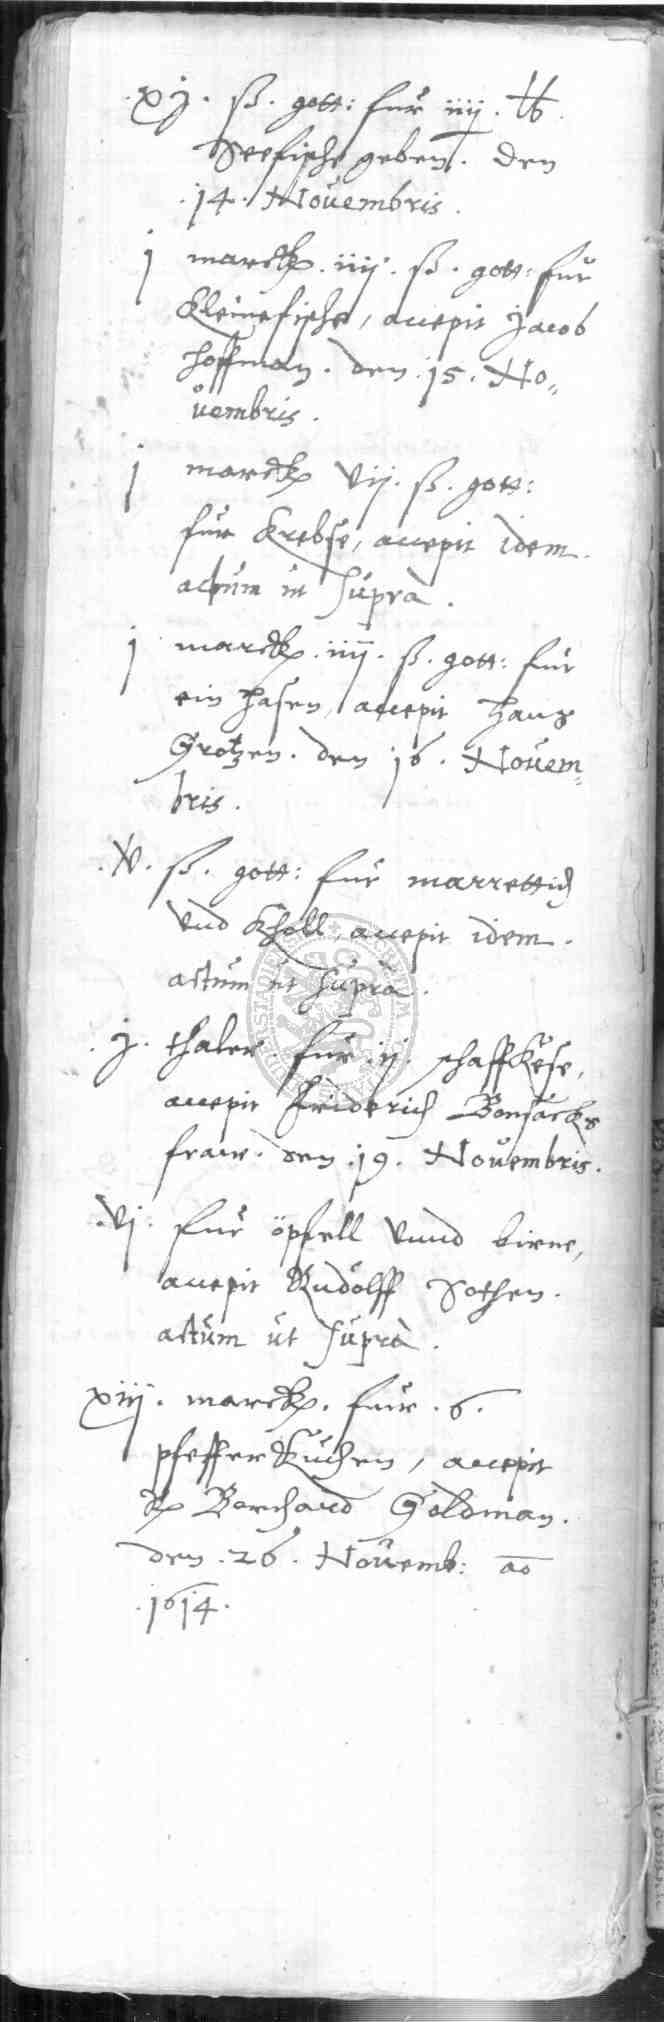 .xj. ß. gott: fur iiij. ℔.
Seefische geben. den
.14. Nouembris.
j marck. iiij. ß. gott: fur
Kleinefische, accepit Jacob
Hoffman. den .15. No„
uembris.
j marck vij. ß. gott:
fur Krebse, accepit idem.
actum ut supra.
j marck. iiij. ß. gott: fur
ein Hasen, accepit Hans
Grotzen. den 16. Nouem„
bris.
.v. ß. gott: fur marrettich
vnd Kholl, accepit idem.
actum ut supra.
.j. thaler. fur .ij. schaffkese,
accepit Friderich Bonsacks
fraw. den .19. Nouembris.
.vj. fur öpfell vnnd birne,
accepit Rudolff Sothen.
actum ut supra.
xiij. marck. fur .6.
pfefferkuchen, accepit
Borchard Goldman.
den .26. Nouemb: ao
.1614.